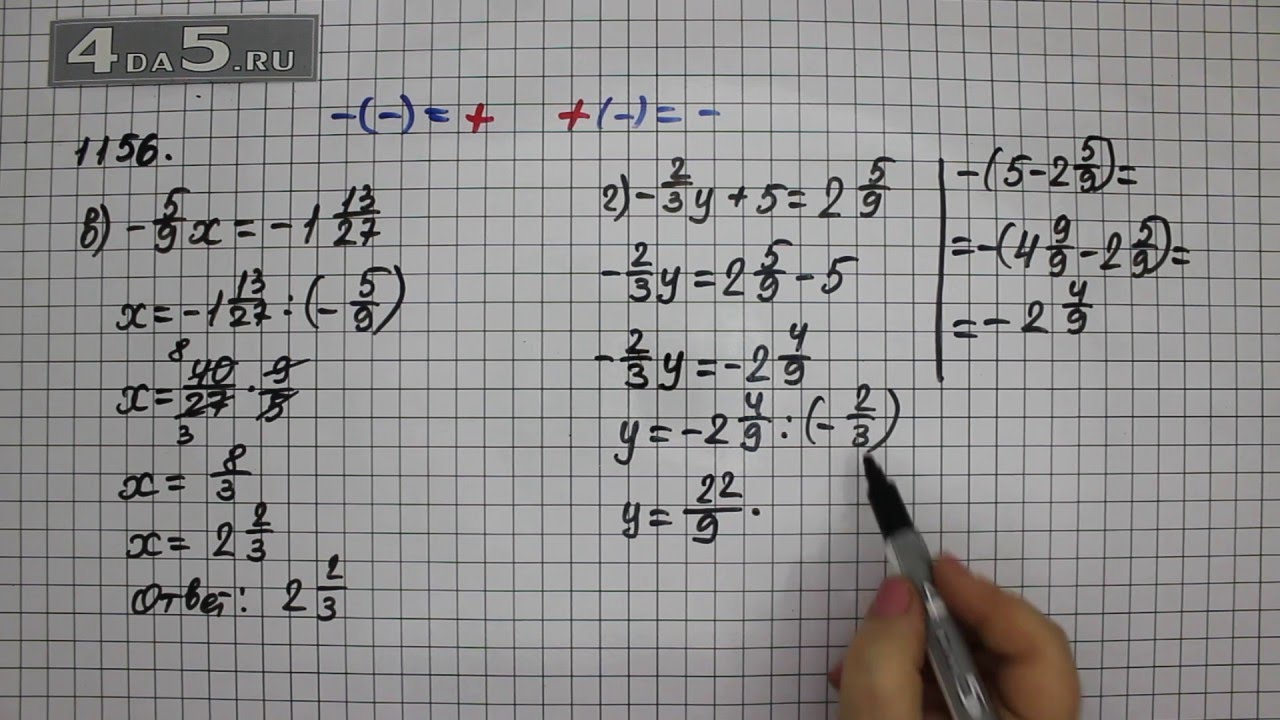 4DA5.RU
-(-) = + +(-) = -
1156.
в) - 5/9 x = -1 13/27
x = -1 13/27 : (- 5/9)
x = 40/27 · 9/5
8
3
x = 8/3
x = 2 2/3
Ответ: 2 2/3
г) - 2/3 y + 5 = 2 5/9
- 2/3 y = 2 5/9 - 5
- 2/3 y = -2 4/9
y = -2 4/9 : (- 2/3)
y = 22/9 ·
-(5 - 2 5/9) =
= -(4 9/9 - 2 5/9) =
= -2 4/9